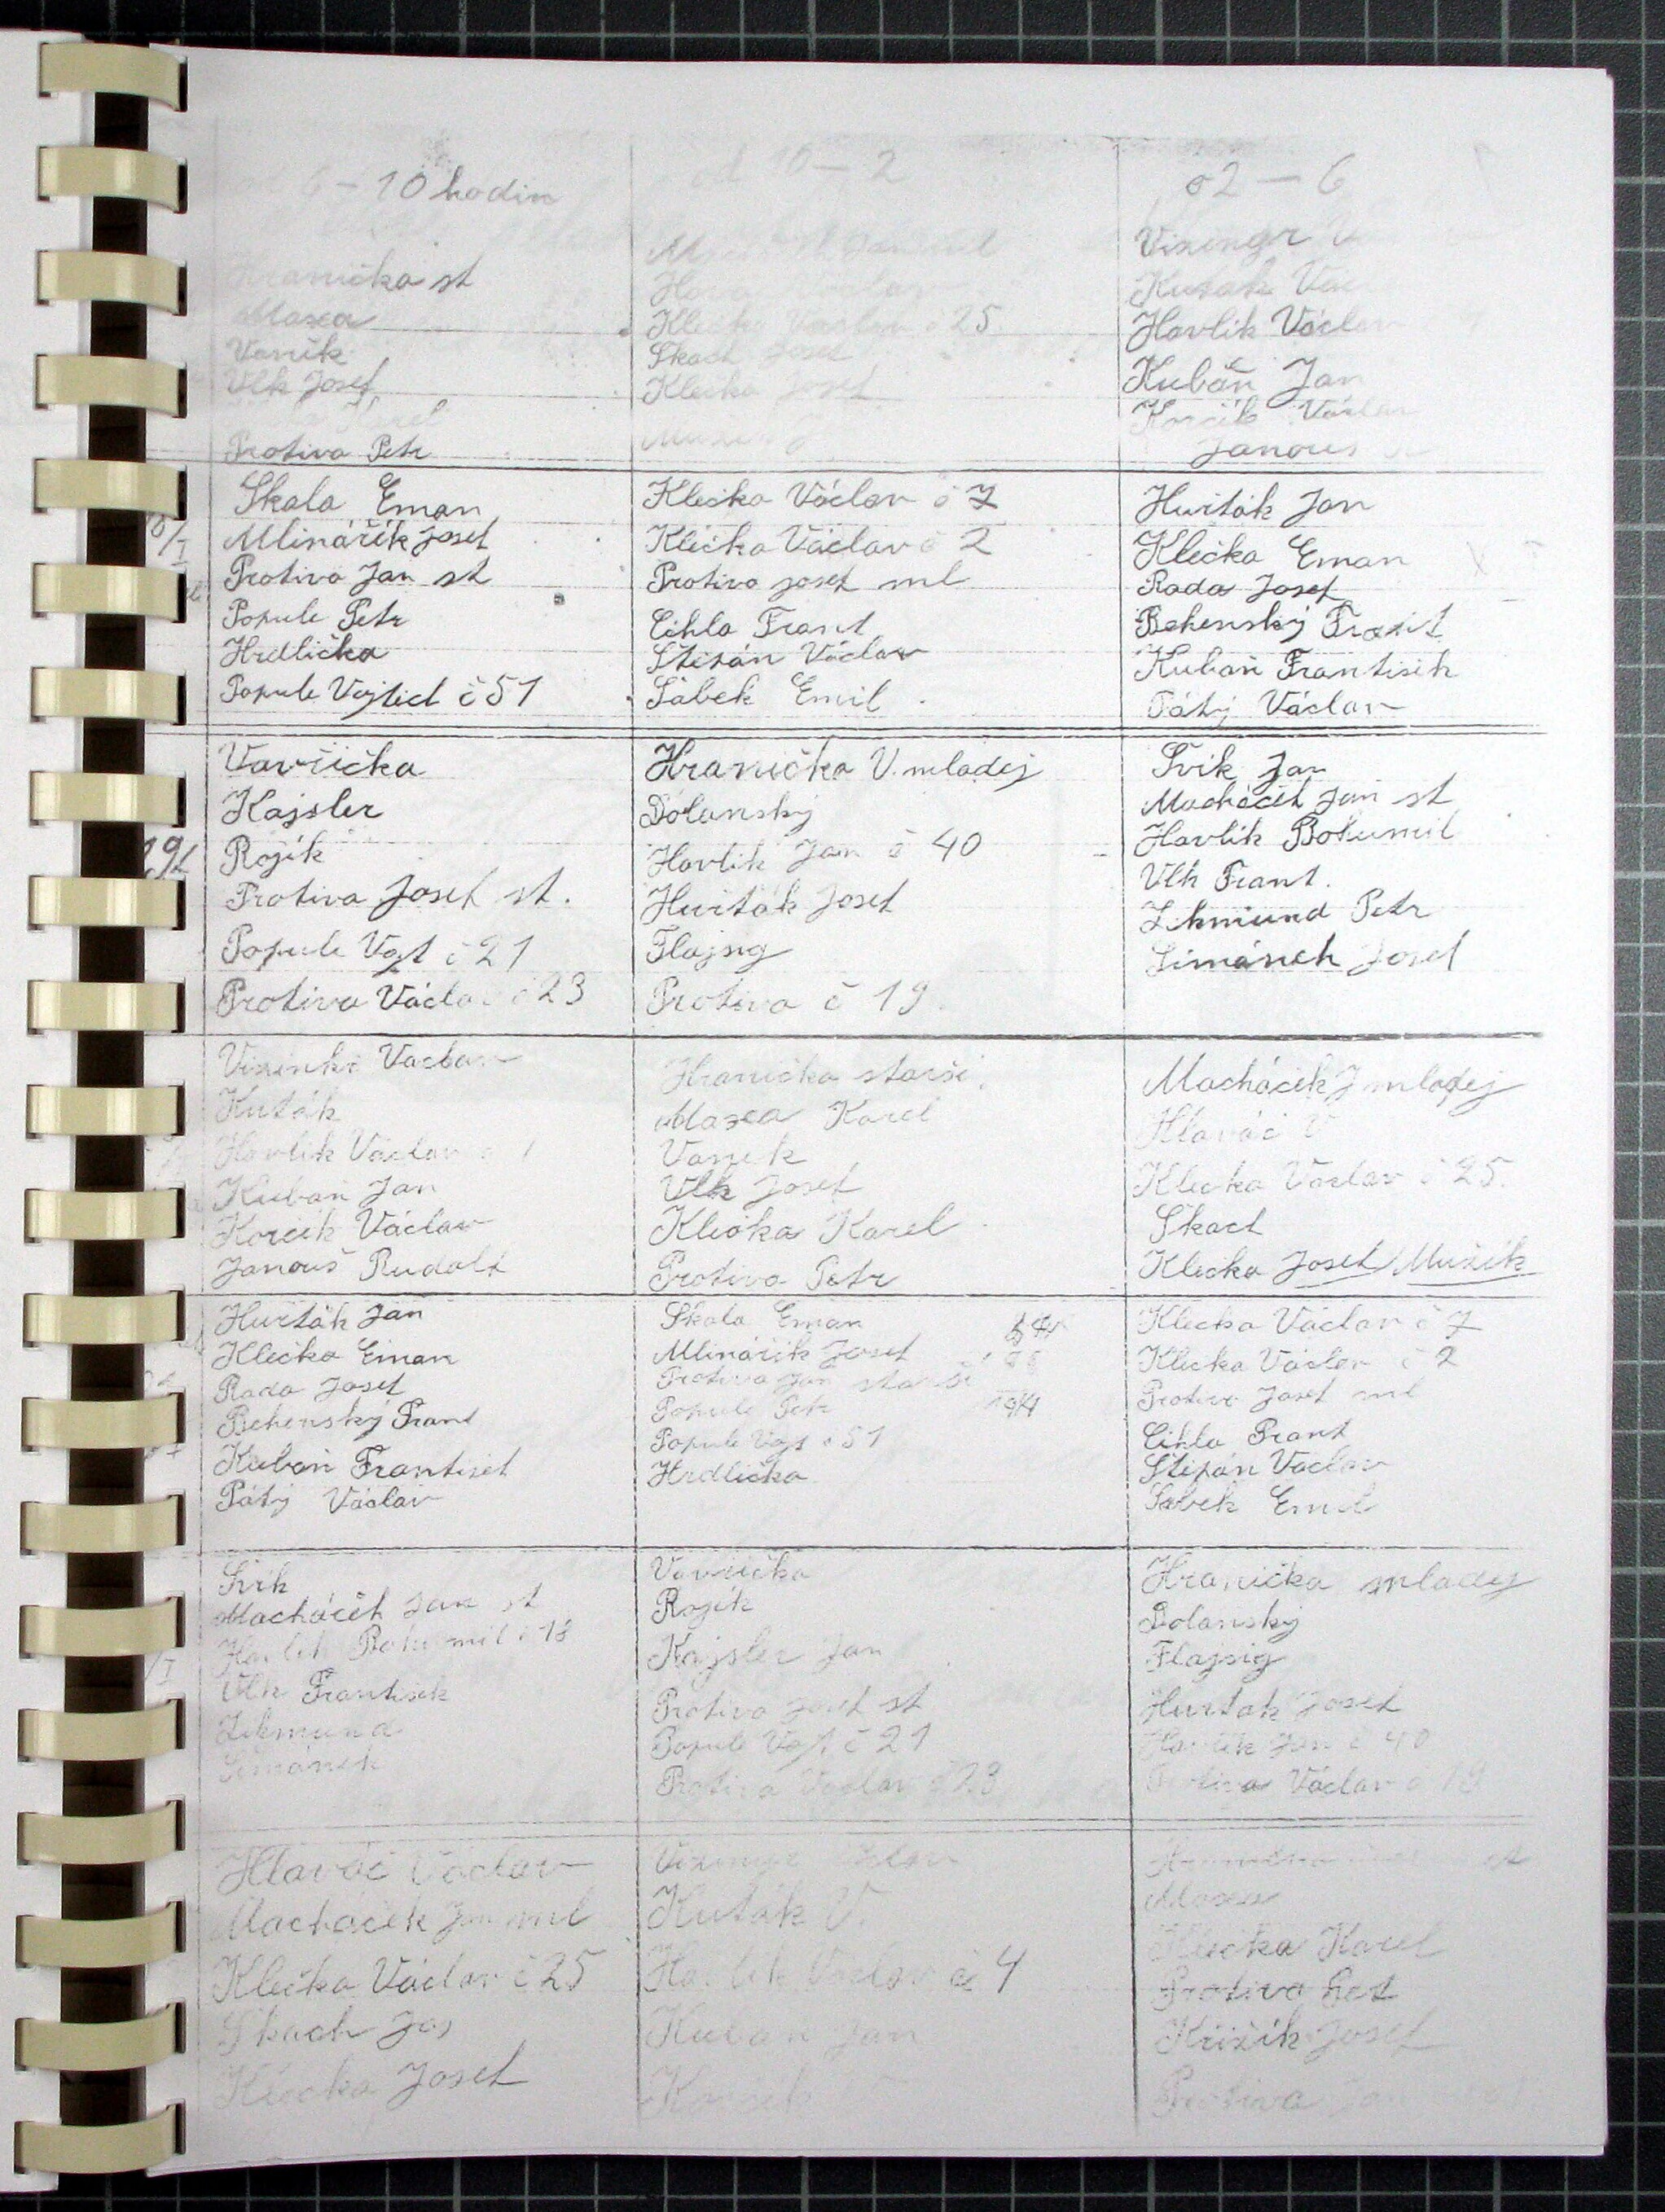 6 - 10 hodin
Hranička st
Masea
Vaník
Vlk Josef
Karel
Protiva Petr
10 - 2
Klečka Václav č 25
Skach Josef
Klečka Josef
o2 - 6
Visingr
Kuták Vác
Havlík Václav
Kubáň Jan
Korčík Václav
Janouš
Skala Eman
Mlinářík Josef
Protiva Jan st
Popule Petr
Hrdlička
Popule Vojtěch č 51
Klečka Václav č 7
Klečka Václav č 2
Protiva Josef ml
Cihla Frant
Štěpán Václav
Sábek Emil
Hurták Jan
Klečka Eman
Rada Josef
Behenský Frant
Kubáň František
Pátý Václav
Vavřička
Kajsler
Rojík
Protiva Josef st.
Popule Vojt č 21
Protiva Václav č 23
Hranička V. mladej
Dolanský
Havlik Jan č 40
Hurták Josef
Flajsig
Protiva č 19
Švik Jan
Macháček Jan st
Havlík Bohumil
Vlk Frant.
Zikmund Petr
Šimánek Josef
Václav
Kuták
Havlik Václav
Kubáň Jan
Korčík Václav
Janouš Rudolf
Hranička starší
Masea Karel
Vanek
Vlk Josef
Klečka Karel
Protiva Petr
Macháček J mladej
Hlaváč V
Klečka Václav č 25.
Skach
Klečka Josef / Mužík
Hurták Jan
Klečka Eman
Rada Josef
Behenský Frant
Kubáň František
Pátý Václav
Skala Eman
Mlinářík Josef
Protiva Jan starší
Popule Petr
Popule Vojt č 51
Hrdlička
Klečka Václav č 7
Klečka Václav č 2
Protiva Josef ml
Cihla Frant
Štěpán Václav
Sábek Emil
Švik
Macháček Jan st
Havlik Bohumil č 18
Vlk František
Zikmund
Šimánek
Vavřička
Rojík
Kajsler Jan
Protiva Josef st
Popule Vojt. č 21
Protiva Václav č 23
Hranička mladej
Dolanský
Flajsig
Hurták Josef
Havlík Jan č 40
Protiva Václav č 19
Hlaváč Václav
Macháček Jan ml
Klečka Václav č 25
Skach Jos
Klečka Josef
Kuták V
Havlik Václav č 4
Kubáň Jan
Masea
Klečka Karel
Protiva Pet
Křižík Josef
Protiva Jan